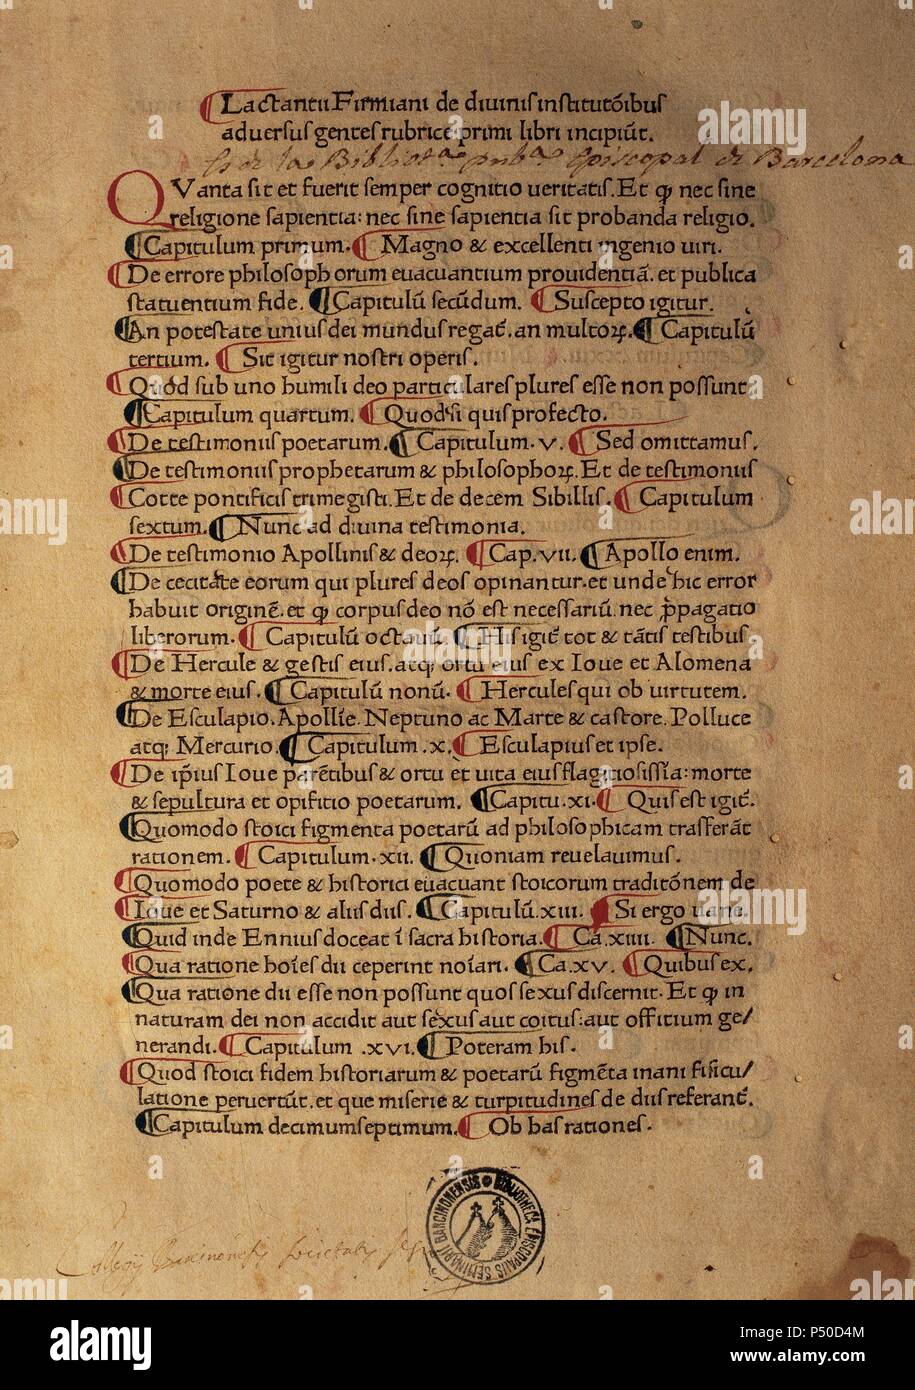 Lactantii Firmiani de diuinis institutõibus
aduersus gentes rubrice primi libri incipiũt.
Es de la Biblioteca pubca Episcopal de Barcelona
QVanta sit et fuerit semper cognitio ueritatis. Et ꝙ nec sine
religione sapientia: nec sine sapientia sit probanda religio.
Capitulum primum. Magno & excellenti ingenio uiri.
De errore philosophorum euacuantium prouidentiã. et publica
statuentium fide. Capitulũ secũdum. Suscepto igitur.
An potestate unius dei mundus regat᷑. an multoꝝ. Capitulũ
tertium. Sit igitur nostri operis.
Quod sub uno humili deo particulares plures esse non possunt
Capitulum quartum. Quod si quis profecto.
De testimoniis poetarum. Capitulum. v. Sed omittamus.
De testimoniis prophetarum & philosophoꝝ. Et de testimoniis
Cotte pontificis trimegisti. Et de decem Sibillis. Capitulum
sextum. Nunc ad diuina testimonia.
De testimonio Apollinis & deoꝝ. Cap. vii. Apollo enim.
De cecitate eorum qui plures deos opinantur. et unde hic error
habuit originẽ. et ꝙ corpus deo nõ est necessariũ. nec ꝓpagatio
liberorum. Capitulũ octauũ. His igit᷑ tot & tãtis testibus.
De Hercule & gestis eius. atqꝫ ortu eius ex Ioue et Alomena
& morte eius. Capitulũ nonũ. Hercules qui ob uirtutem.
De Esculapio. Apollĩe. Neptuno ac Marte & castore. Polluce
atqꝫ Mercurio. Capitulum .x. Esculapius et ipse.
De ip̃ius Ioue parẽtibus & ortu et uita eius flagitiosissĩa: morte
& sepultura et opifitio poetarum. Capitu. xi. Quis est igit᷑.
Quomodo stoici figmenta poetarũ ad philosophicam trãsferãt
rationem. Capitulum. xii. Quoniam reuelauimus.
Quomodo poete & historici euacuant stoicorum traditõnem de
Ioue et Saturno & aliis diis. Capitulũ. xiii. Si ergo uane.
Quid inde Ennius doceat ĩ sacra historia. Ca. xiiii. Nunc.
Qua ratione hoĩes dii ceperint noĩari. Ca. xv. Quibus ex.
Qua ratione dii esse non possunt quos sexus discernit. Et ꝙ in
naturam dei non accidit aut sexus aut coitus: aut offitium ge/
nerandi. Capitulum .xvi. Poteram his.
Quod stoici fidem historiarum & poetarũ figmẽta inani fisicu/
latione peruertũt. et que miserie & turpitudines de diis referant᷑.
Capitulum decimumseptimum. Ob has rationes.
BIBLIOTHECA EPISCOPALIS SEMINARII BARCINONENSIS
alamy
Image ID: P50D4M
www.alamy.com